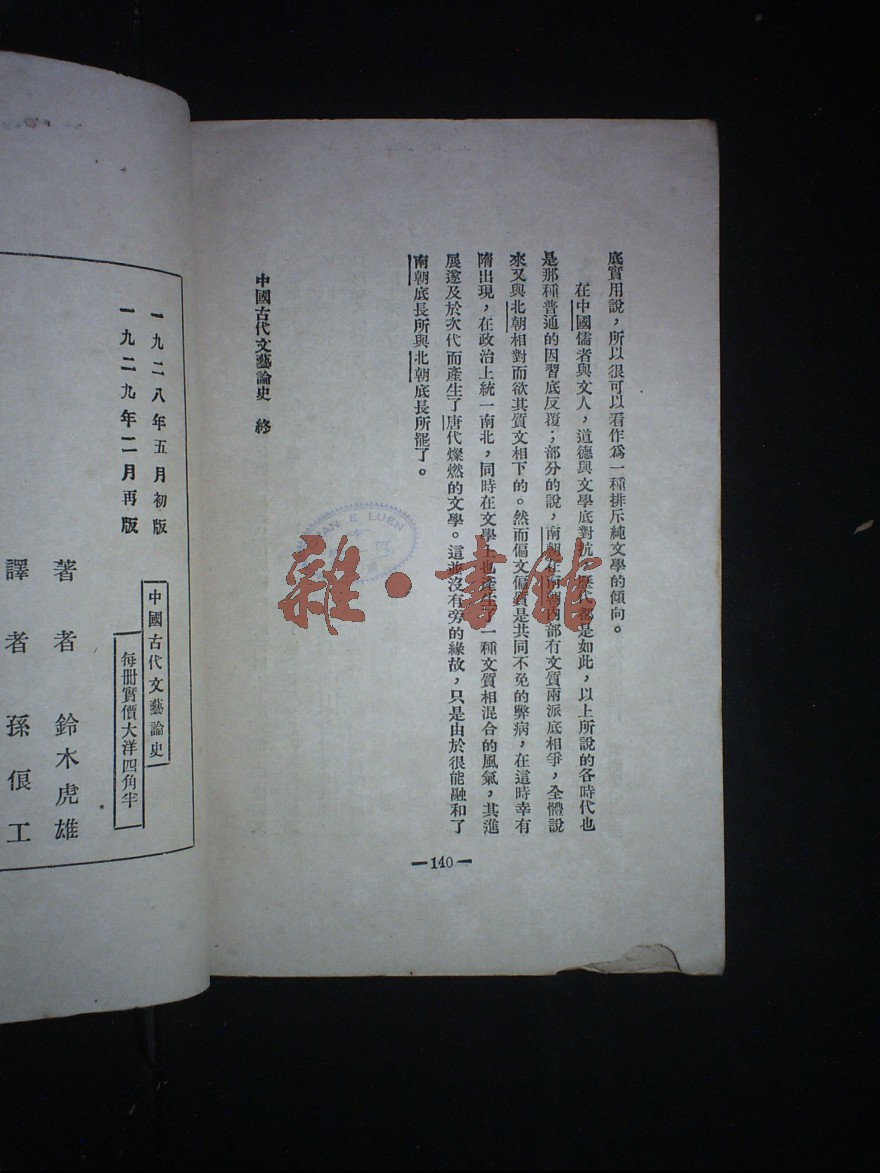 底實用說，所以很可以看作爲一種排斥純文學的傾向。
在中國儒者與文人，道德與文學底對抗，歷代都是如此，以上所說的各時代也
是那種普通的因習底反覆；部分的說，南朝在南朝內部有文質兩派底相爭，全體說
來又與北朝相對而欲其質文相下的。然而偏文偏質是其同不免的弊病，在這時幸有
隋出現，在政治上統一南北，同時在文學上也產生了一種文質相混合的風氣，其進
展遂及於次代而產生了唐代燦燃的文學。這並沒有旁的緣故，只是由於很能融和了
南朝底長所與北朝底長所罷了。
中國古代文藝論史　終
—140—
E LUEN
雜·書館
一九二八年五月初版
一九二九年二月再版
中國古代文藝論史
每冊實價大洋四角半
著者　鈴木虎雄
譯者　孫俍工